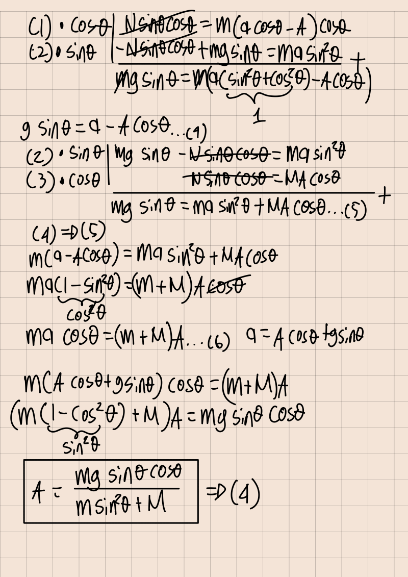 (1) · cosθ | N sinθ cosθ = m(a cosθ - A) cosθ
(2) · sinθ | -N sinθ cosθ + mg sinθ = ma sin²θ +
mg sinθ = m(a(sin²θ + cos²θ) - A cosθ)
1
g sinθ = a - A cosθ ... (4)
(2) · sinθ | mg sinθ - N sinθ cosθ = ma sin²θ
(3) · cosθ | N sinθ cosθ = MA cosθ +
mg sinθ = ma sin²θ + MA cosθ ... (5)
(4) => (5)
m(a - A cosθ) = ma sin²θ + MA cosθ
ma(1 - sin²θ) = (m + M) A cosθ
cos²θ
ma cosθ = (m + M) A ... (6) a = A cosθ + g sinθ
m(A cosθ + g sinθ) cosθ = (m + M) A
(m(1 - cos²θ) + M) A = mg sinθ cosθ
sin²θ
A = mg sinθ cosθ / m sin²θ + M => (4)